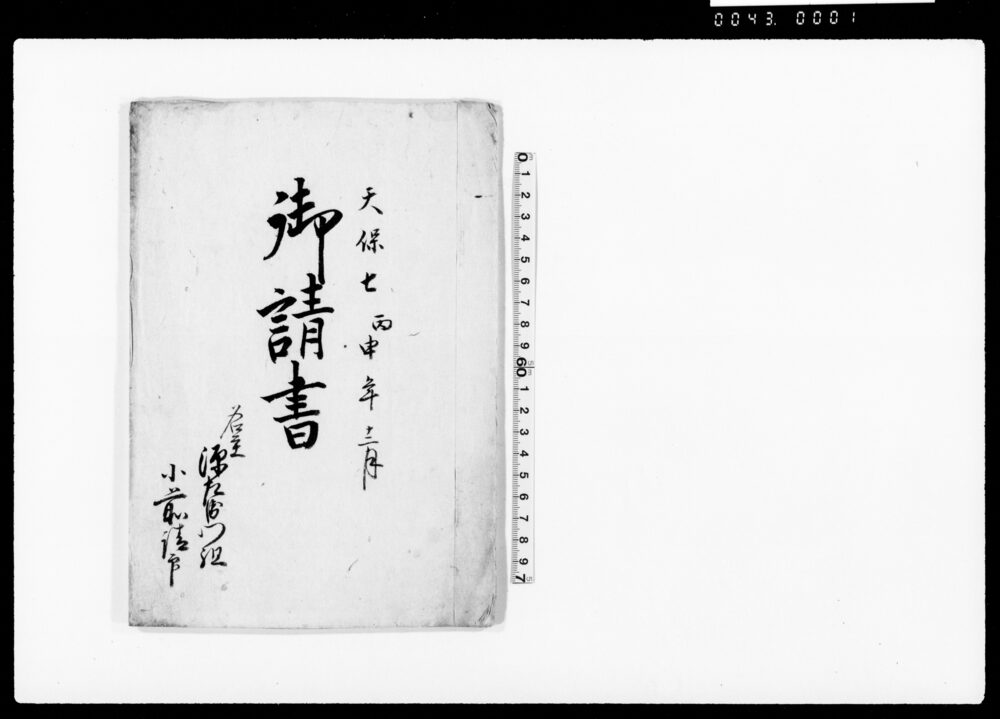 0043. 0001
天保七丙申年十二月
御請書
名主
源左衛門組
小前請印
0 1 2 3 4 5 6 7 8 9 60 1 2 3 4 5 6 7 8 9 7